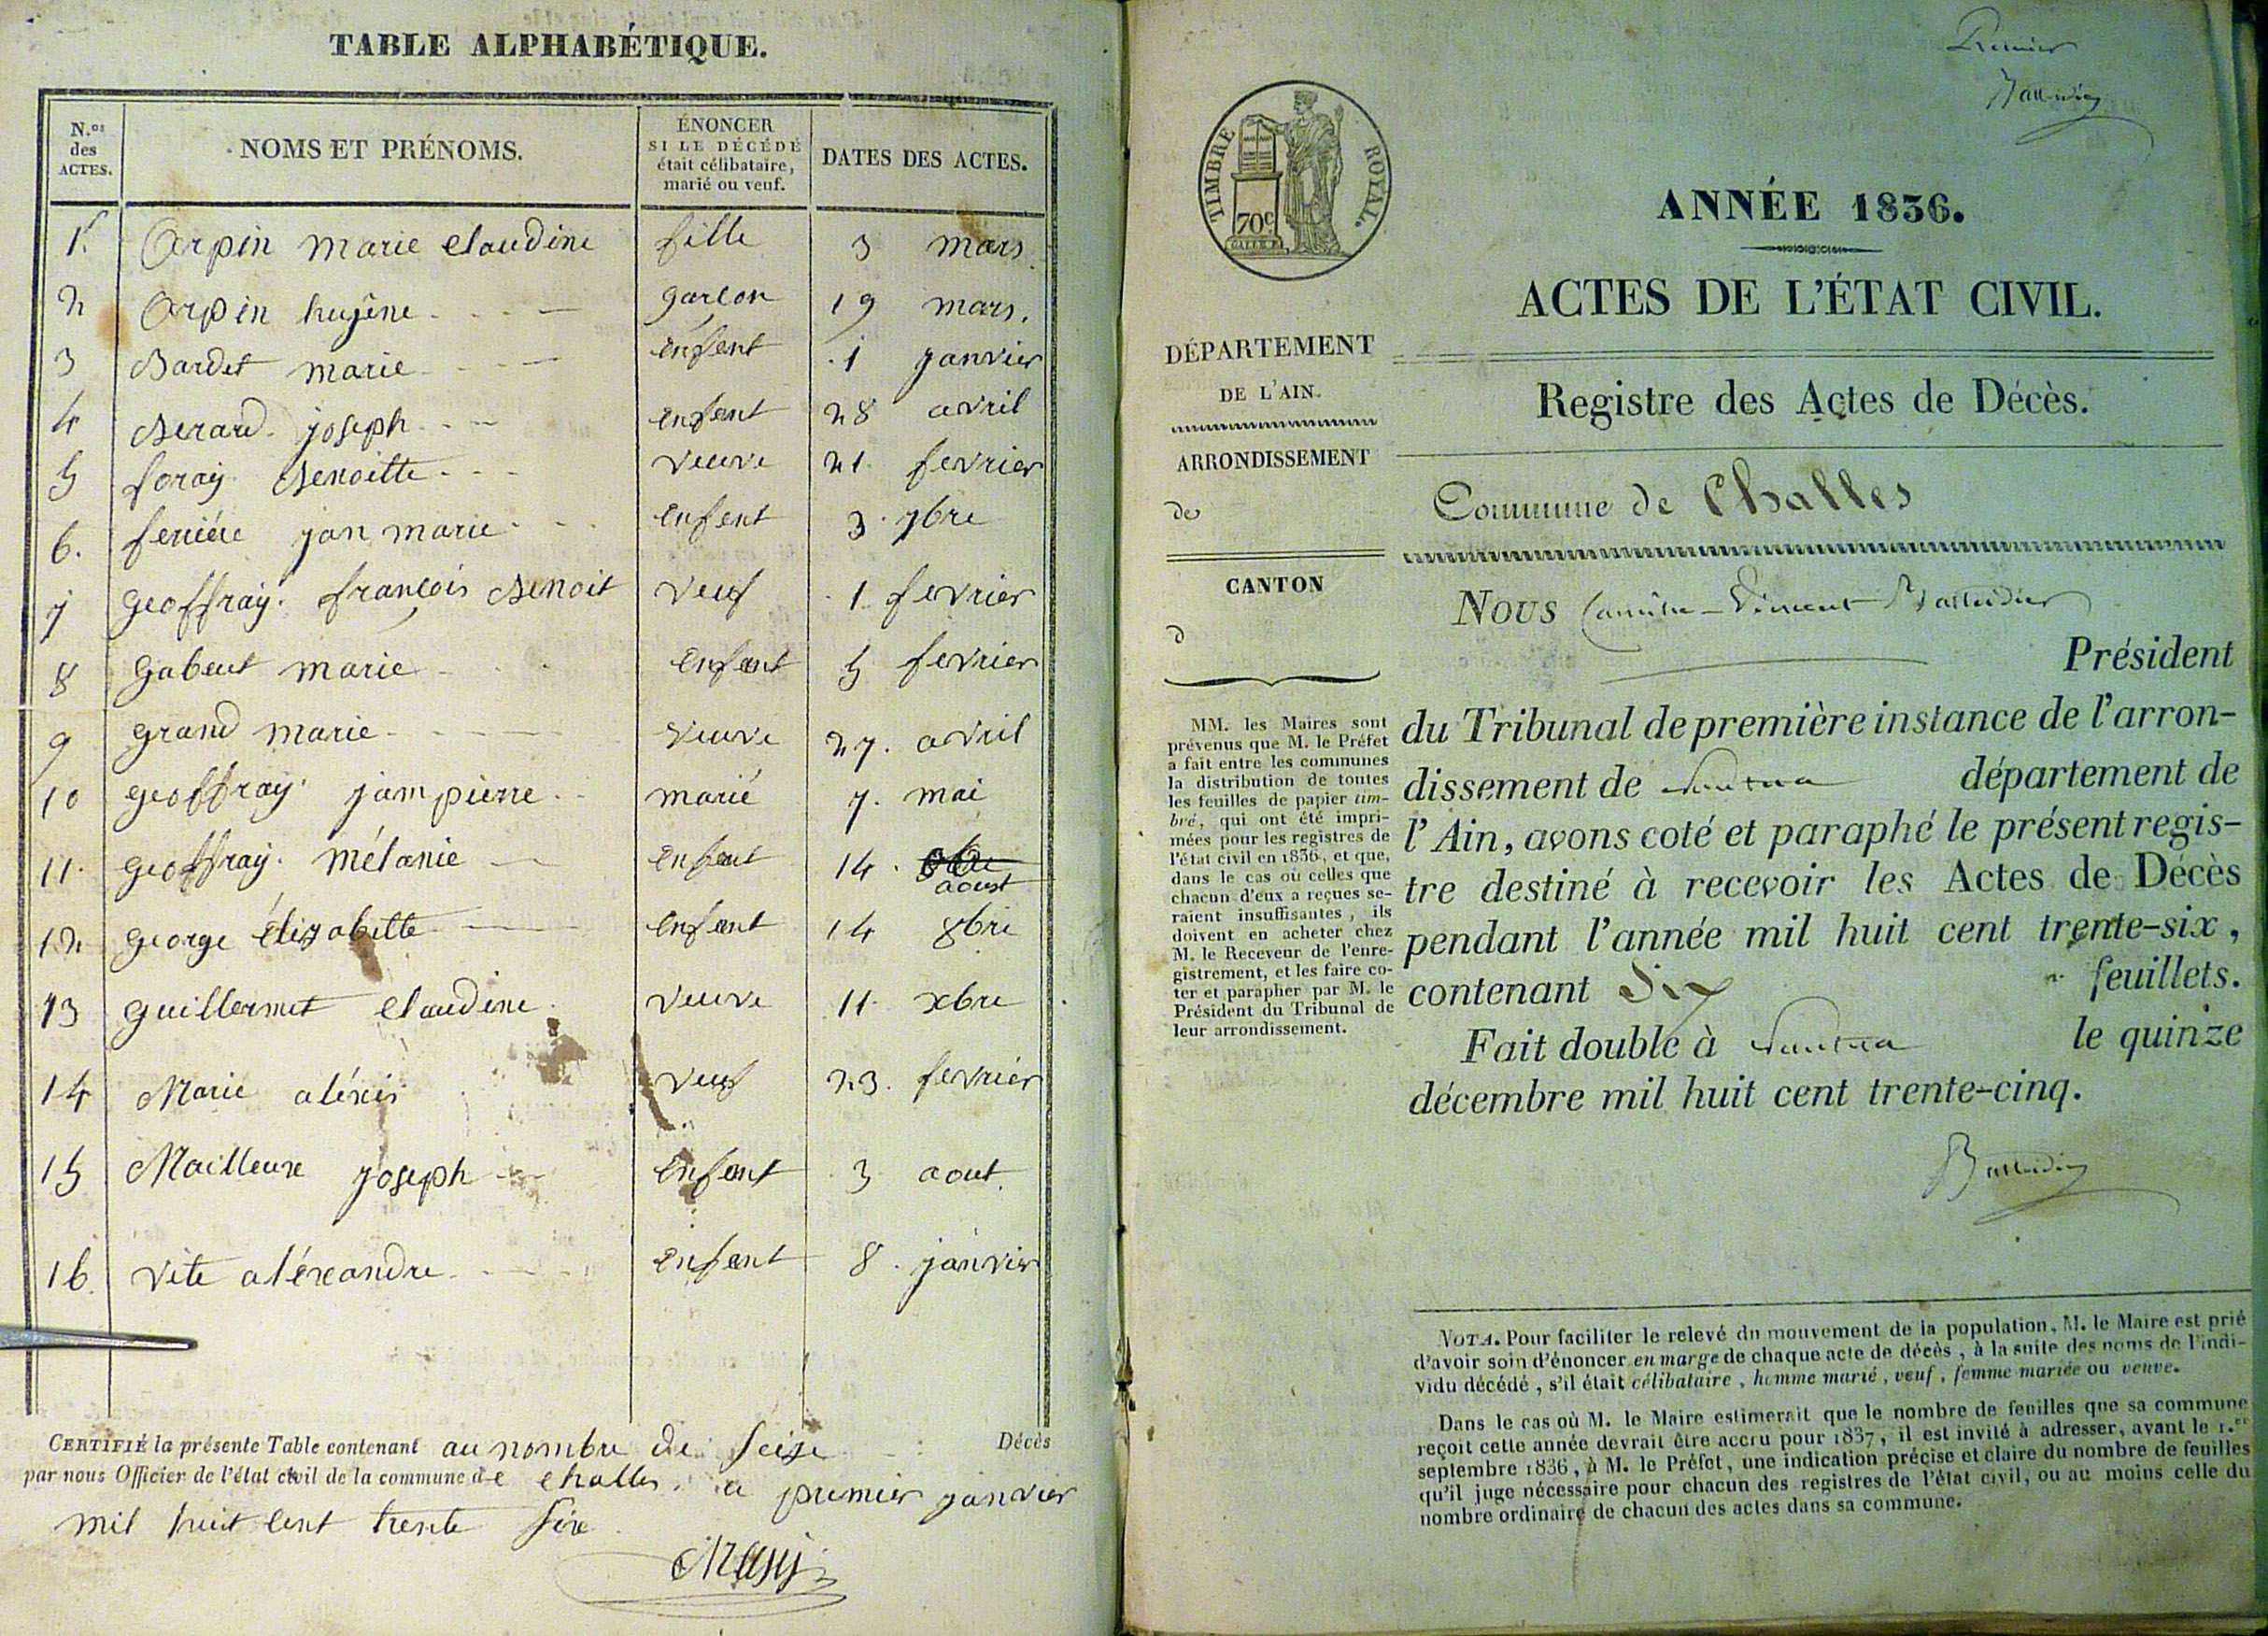 TABLE ALPHABÉTIQUE.
N.os des ACTES.
NOMS ET PRÉNOMS.
ÉNONCER SI LE DÉCÉDÉ était célibataire, marié ou veuf.
DATES DES ACTES.
1. Orpin marie claudine fille 3 mars
2 Orpin garcon 19 mars.
3 Bardet marie enfent 1 janvier
4 Berard joseph enfent 28 avril
5 foray Benoitte veuve 21 fevrier
6. jan marie enfent 3 7bre
7 geoffray françois Benoit veuf 1 fevrier
8 gabeut marie enfent 5 fevrier
9 grand marie veuve 27. avril
10 geoffray jampierre marié 7. mai
11. geoffray mélanie enfent 14. aoust
12 george élizabette enfent 14 8bre
13 guillermet claudine veuve 11 xbre
14 Marie aléxis veuf 23. fevrier
15 Mailleux joseph enfent 3 aout.
16. vite aléxandre enfent 8. janvier
CERTIFIÉ la présente Table contenant au nombre de seize Décès
par nous Officier de l'état civil de la commune de challes, a premier janvier
mil huit cent trente six
Premier
TIMBRE ROYAL.
70c
ANNÉE 1836.
ACTES DE L'ÉTAT CIVIL.
DÉPARTEMENT
DE L'AIN.
Registre des Actes de Décès.
ARRONDISSEMENT
de
Commune de Challes
CANTON
d
MM. les Maires sont
prévenus que M. le Préfet
a fait entre les communes
la distribution de toutes
les feuilles de papier tim-
bré, qui ont été impri-
mées pour les registres de
l'état civil en 1836, et que,
dans le cas où celles que
chacun d'eux a reçues se-
raient insuffisantes, ils
doivent en acheter chez
M. le Receveur de l'enre-
gistrement, et les faire co-
ter et parapher par M. le
Président du Tribunal de
leur arrondissement.
Nous Camille-Vincent
Président
du Tribunal de première instance de l'arron-
dissement de Nantua département de
l'Ain, avons coté et paraphé le présent regis-
tre destiné à recevoir les Actes de Décès
pendant l'année mil huit cent trente-six,
contenant Six feuillets.
Fait double à Nantua le quinze
décembre mil huit cent trente-cinq.
NOTA. Pour faciliter le relevé du mouvement de la population, M. le Maire est prié
d'avoir soin d'énoncer en marge de chaque acte de décès, à la suite des noms de l'indi-
vidu décédé, s'il était célibataire, homme marié, veuf, femme mariée ou veuve.
Dans le cas où M. le Maire estimerait que le nombre de feuilles que sa commune
reçoit cette année devrait être accru pour 1837, il est invité à adresser, avant le 1.er
septembre 1836, à M. le Préfet, une indication précise et claire du nombre de feuilles
qu'il juge nécessaire pour chacun des registres de l'état civil, ou au moins celle du
nombre ordinaire de chacun des actes dans sa commune.